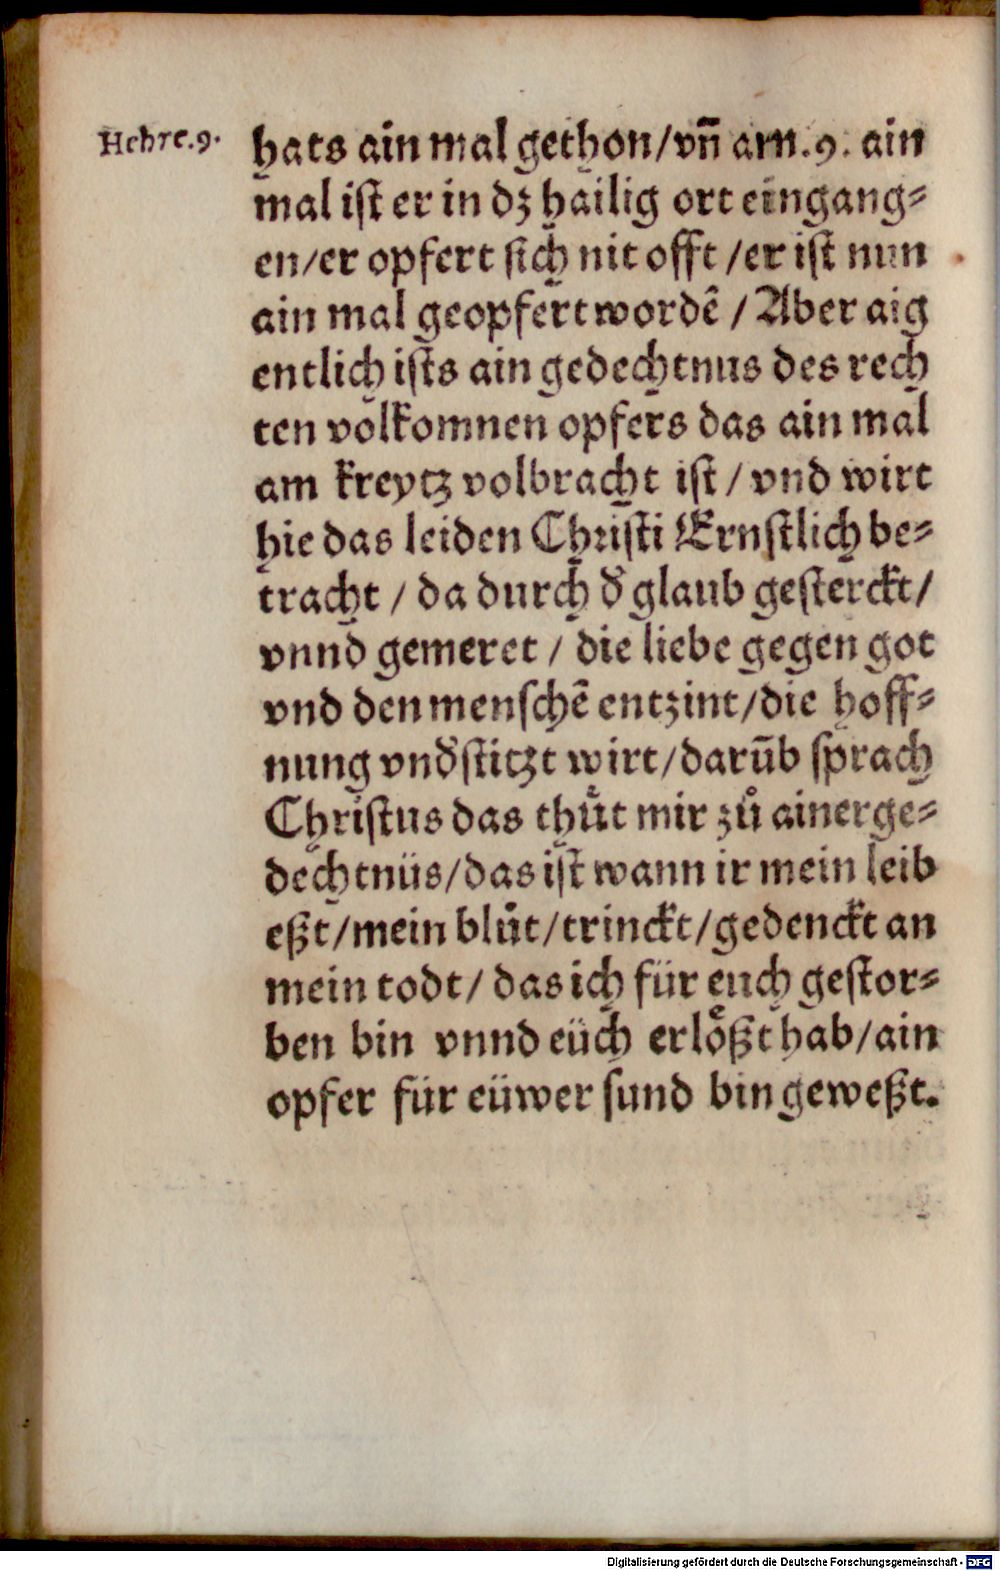 Hebre.9.
hats ain mal gethon/vn̄ am.9. ain
mal ist er in dz hailig ort eingang⸗
en/er opfert sich nit offt /er ist nun
ain mal geopfert wordē / Aber aig
entlich ists ain gedechtnus des rech
ten volkomnen opfers das ain mal
am kreytz volbracht ist / vnd wirt
hie das leiden Christi Ernstlich be⸗
tracht / da durch d̕ glaub gesterckt/
vnnd gemeret / die liebe gegen got
vnd den menschē entzint/die hoff⸗
nung vnd̕stitzt wirt/darūb sprach
Christus das thuͦt mir zuͦ ainer ge⸗
dechtnüs/das ist wann ir mein leib
eßt/mein bluͦt/trinckt/gedenckt an
mein todt/ das ich für euch gestor⸗
ben bin vnnd eüch erloͤßt hab/ain
opfer für eüwer sund bin geweßt.
Digitalisierung gefördert durch die Deutsche Forschungsgemeinschaft - DFG